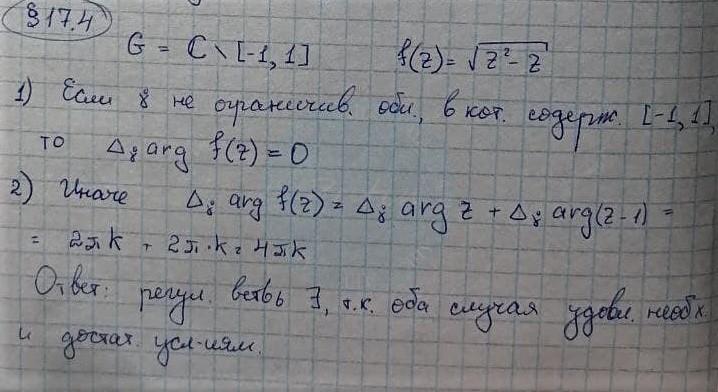 § 17.4
G = ℂ \ [-1, 1] f(z) = √(z² - z)
1) Если γ не ограничив. обл., в кот. содерж. [-1, 1],
то Δ_γ arg f(z) = 0
2) Иначе Δ_γ arg f(z) = Δ_γ arg z + Δ_γ arg(z-1) =
= 2πk + 2π·k = 4πk
Ответ: регул. ветвь ∃, т.к. оба случая удовл. необх.
и достат. усл-иям.